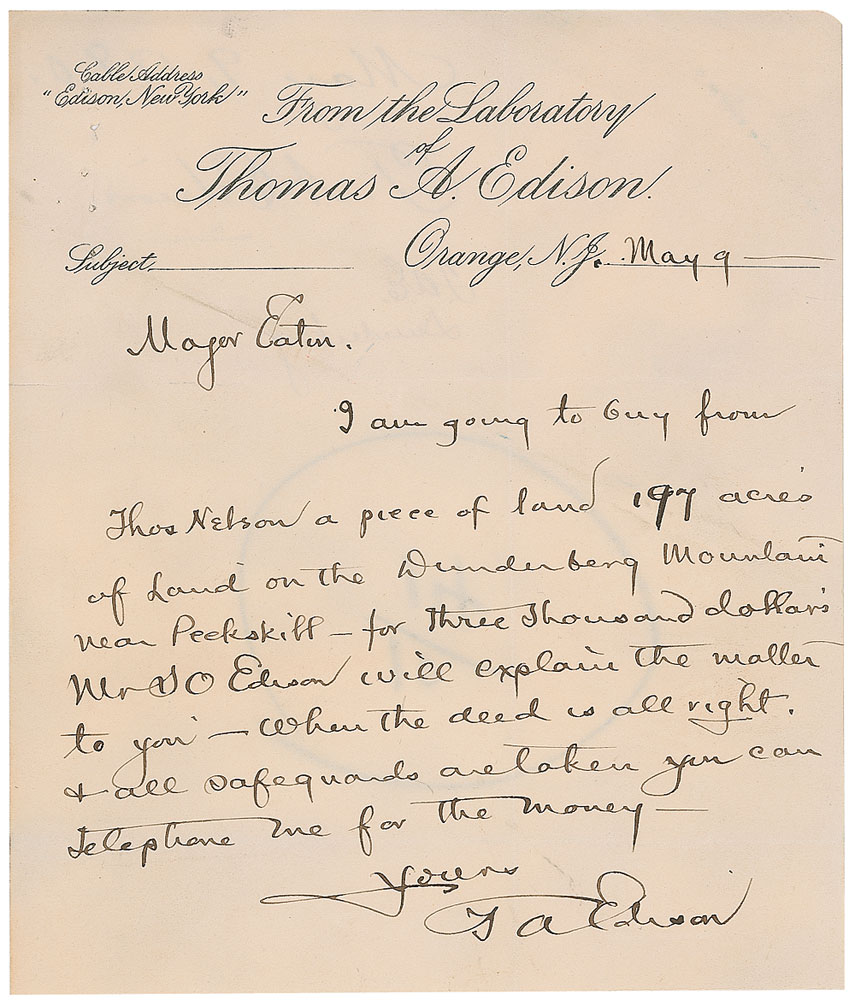 Cable Address
"Edison, New York"
From the Laboratory
of
Thomas A. Edison.
Subject
Orange, N.J. May 9
Major Eaton.
I am going to buy from
Thos Nelson a piece of land 197 acres
of Land on the Dunderberg Mountain
near Peekskill – for three Thousand dollars
Mr S O Edison will explain the matter
to you – When the deed is all right.
& all safeguards are taken you can
telephone me for the money –
Yours
T A Edison